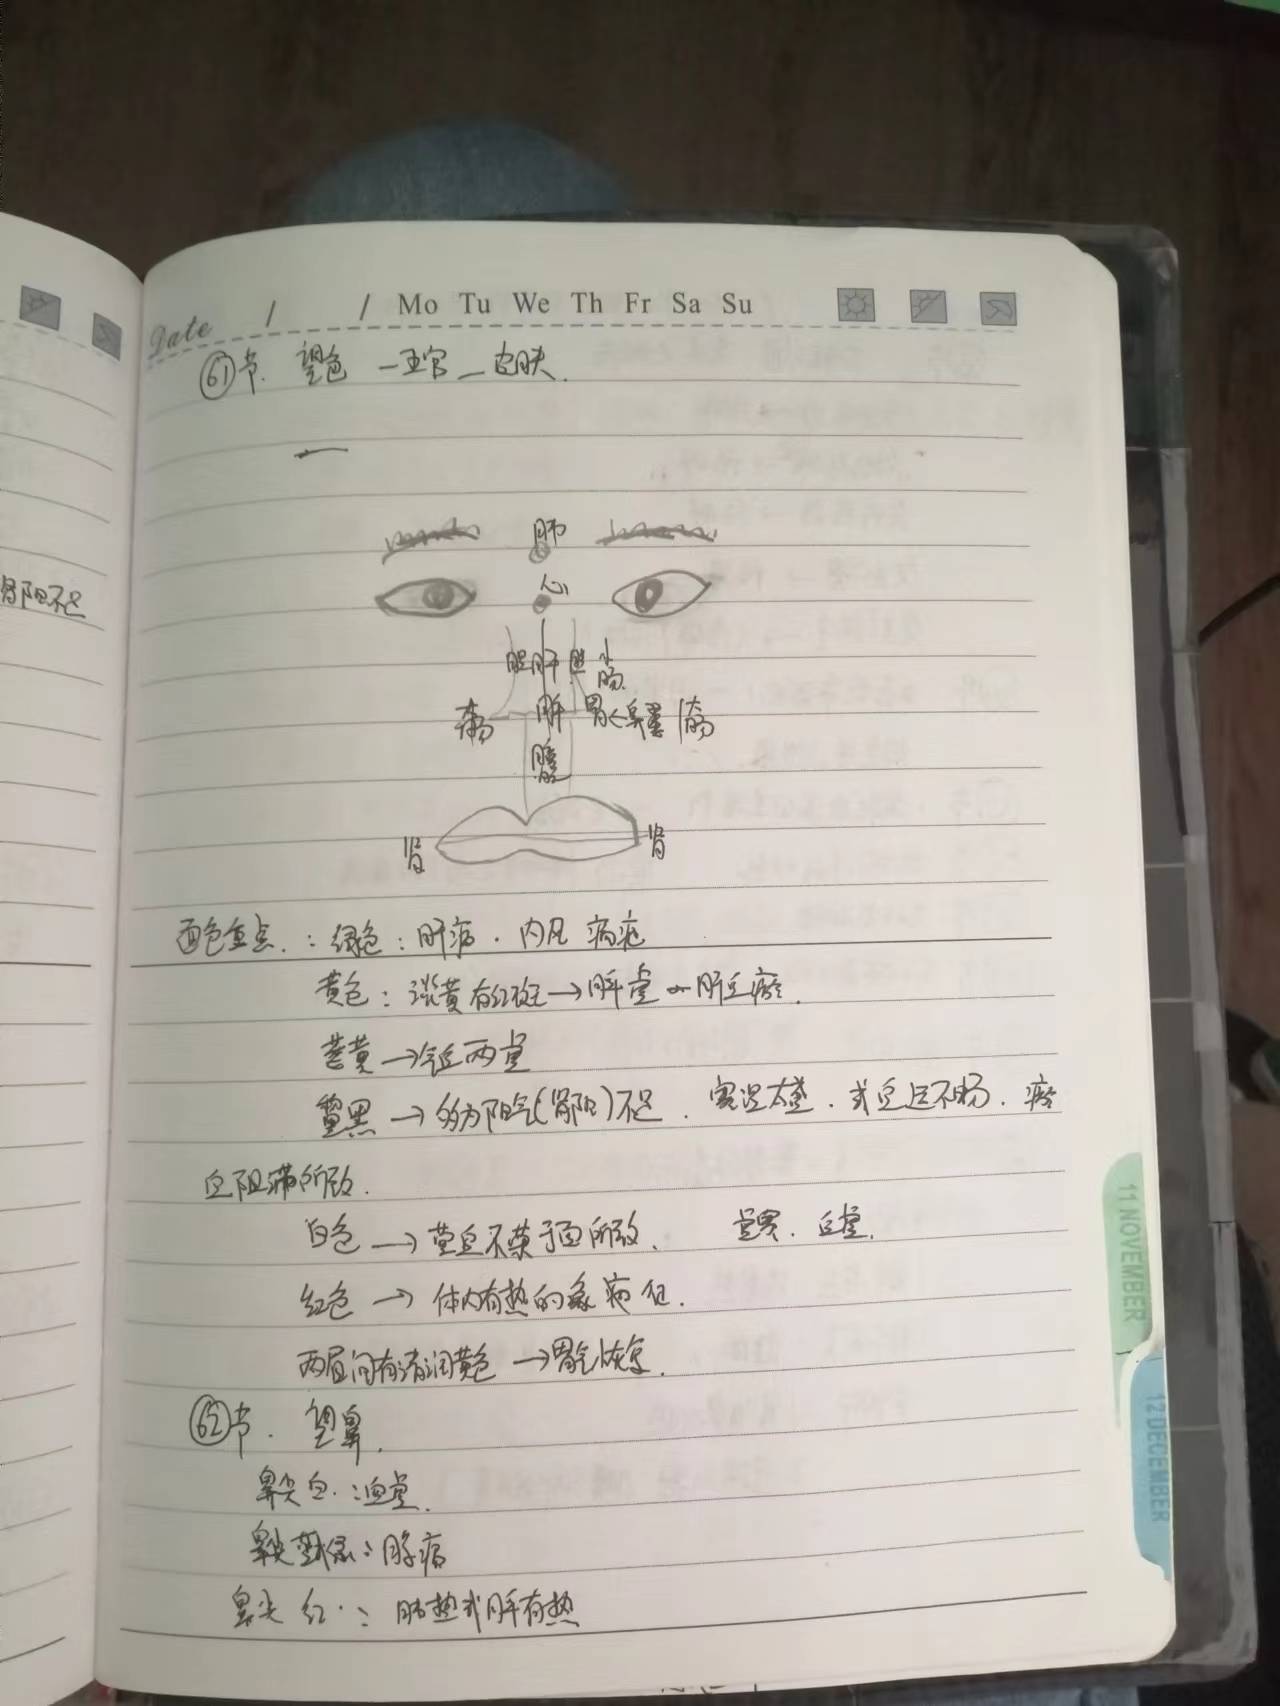 肾阳不足
Date / / Mo Tu We Th Fr Sa Su
61节. 望色 一五官一皮肤.
肺
心
胆 肝 胆 小肠
大肠 脾 胃<鼻翼 大肠
肾 肾
面色重点.: 绿色: 肝病. 内风 病
黄色: 淡黄有红斑→脾虚 肝血瘀.
黄→气血两虚
黑→多为阳气(肾阳)不足. 寒湿太盛. 或血运不畅. 瘀
血阻滞所致.
白色→营血不荣于面所致. 虚寒. 血虚.
红色→体内有热的象病征.
两眉间有清润黄色→胃气恢复.
62节. 望鼻.
鼻尖白.: 血虚.
鼻尖: 病
鼻尖红.: 肺热或脾有热
11 NOVEMBER
12 DECEMBER